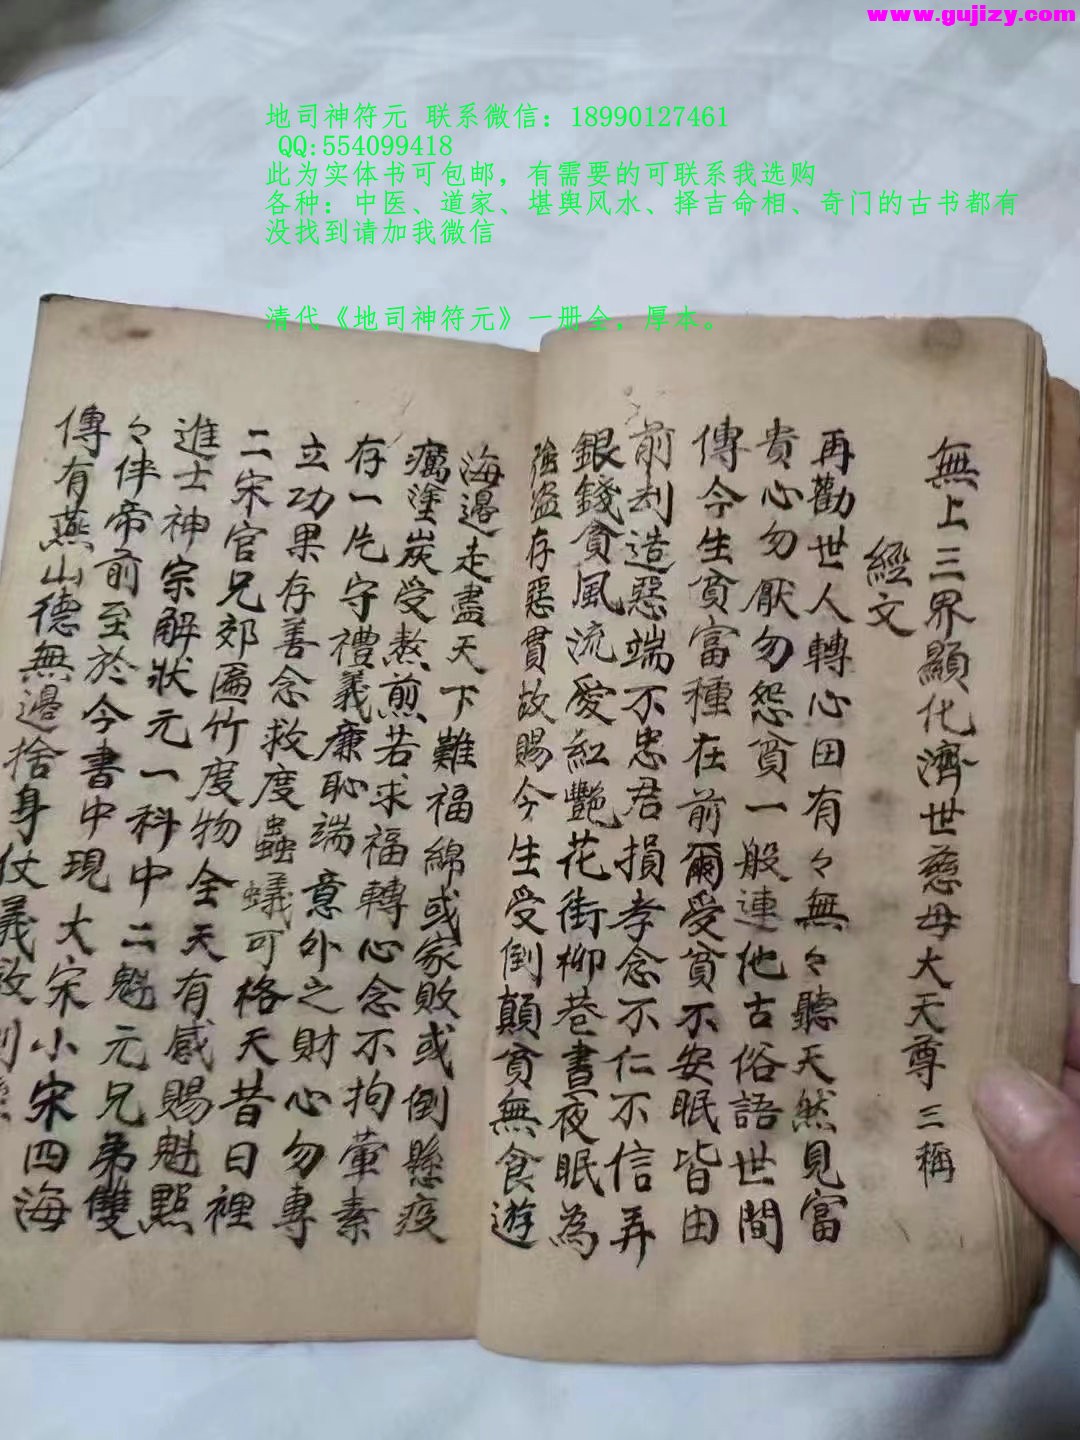 www.gujizy.com
地司神符元 联系微信：18990127461
QQ:554099418
此为实体书可包邮，有需要的可联系我选购
各种：中医、道家、堪舆风水、择吉命相、奇门的古书都有
没找到请加我微信
清代《地司神符元》一册全，厚本。
無上三界顯化濟世慈母大天尊三稱
經文
再勸世人轉心田有々無々聽天然見富
貴心勿厭勿怨貧一般連他古俗語世間
傳今生貧富種在前爾受貧不安眠皆由
前刦造惡端不忠君損孝念不仁不信弄
銀錢貪風流愛紅艷花街柳巷晝夜眠為
強盜存惡貫故賜今生受倒顛貧無食遊
海邊走盡天下難福綿或家敗或倒懸疫
癘塗炭受熬煎若求福轉心念不拘葷素
存一片守禮義廉恥端意外之財心勿專
立功果存善念救度蟲蟻可格天昔日裡
二宋官兄郊匾竹度物全天有感賜魁點
進士神宗解狀元一科中二魁元兄弟雙
々伴帝前至於今書中現大宋小宋四海
傳有燕山德無邊捨身仗義